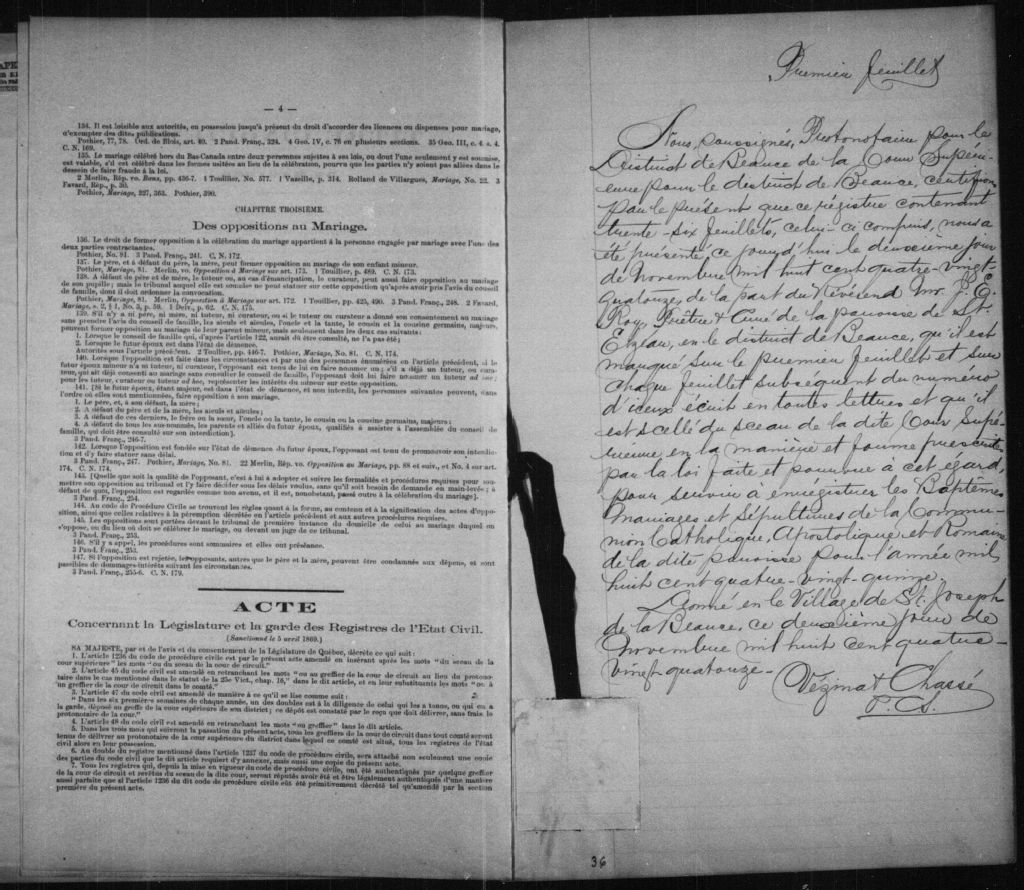 — 4 —
134. Il est loisible aux autorités, en possession jusqu'à présent du droit d'accorder des licences ou dispenses pour mariage,
d'exempter des dites publications.
Pothier, 77, 78. Ord. de Blois, art. 40. 2 Pand. Franç., 324. 4 Geo. IV, c. 76 en plusieurs sections. 35 Geo. III, c. 4. s. 4.
C. N. 169.
135. Le mariage célébré hors du Bas-Canada entre deux personnes sujettes à ses lois, ou dont l'une seulement y est soumise,
est valable, s'il est célébré dans les formes usitées au lieu de la célébration, pourvu que les parties n'y soient pas allées dans le
dessein de faire fraude à la loi.
2 Merlin, Rép. vo. Bans, pp. 436-7. 1 Toullier, No. 577. 1 Vazeille, p. 314. Rolland de Villargues, Mariage, No. 22. 3
Favard, Rép., p. 30.
Pothier, Mariage, 327, 363. Pothier, 390.
CHAPITRE TROISIÈME.
Des oppositions au Mariage.
136. Le droit de former opposition à la célébration du mariage appartient à la personne engagée par mariage avec l'une des
deux parties contractantes.
Pothier, No. 81. 3 Pand. Franç., 241. C. N. 172.
137. Le père, et à défaut du père, la mère, peut former opposition au mariage de son enfant mineur.
Pothier, Mariage, 81. Merlin, vo. Opposition à Mariage sur art. 173. 1 Toullier, p. 489. C. N. 173.
138. A défaut de père et de mère, le tuteur ou, au cas d'émancipation, le curateur, peut aussi faire opposition au mariage
de son pupille; mais le tribunal auquel elle est soumise ne peut statuer sur cette opposition qu'après avoir pris l'avis du conseil
de famille, dont il doit ordonner la convocation.
Pothier, Mariage, 81. Merlin, Opposition à Mariage sur art. 172. 1 Toullier, pp. 423, 490. 3 Pand. Franç., 248. 2 Favard,
Mariage, s. 2, § 1, No. 3, p. 59. 1 Delv., p. 62. C. N. 175.
139. S'il n'y a ni père, ni mère, ni tuteur, ni curateur, ou si le tuteur ou curateur a donné son consentement au mariage
sans prendre l'avis du conseil de famille, les aïeuls et aïeules, l'oncle et la tante, le cousin et la cousine germains, majeurs,
peuvent former opposition au mariage de leur parent mineur, mais seulement dans les deux cas suivants:
1. Lorsque le conseil de famille qui, d'après l'article 122, aurait dû être consulté, ne l'a pas été;
2. Lorsque le futur époux est dans l'état de démence.
Autorités sous l'article précédent. 2 Toullier, pp. 446-7. Pothier, Mariage, No. 81. C. N. 174.
140. Lorsque l'opposition est faite dans les circonstances et par une des personnes énumérées en l'article précédent, si le
futur époux mineur n'a ni tuteur, ni curateur, l'opposant est tenu de lui en faire nommer un; s'il a déjà un tuteur, ou cura-
teur, qui ait déjà consenti au mariage sans consulter le conseil de famille, l'opposant doit lui faire nommer un tuteur ad hoc;
pour les tuteur, curateur ou tuteur ad hoc, représenter les intérêts du mineur sur cette opposition.
141. [Si le futur époux, étant majeur, est dans l'état de démence, et non interdit, les personnes suivantes peuvent, dans
l'ordre où elles sont mentionnées, faire opposition à son mariage.
1. Le père, et, à son défaut, la mère;
2. A défaut du père et de la mère, les aïeuls et aïeules;
3. A défaut de ces derniers, le frère ou la sœur, l'oncle ou la tante, le cousin ou la cousine germains, majeurs;
4. A défaut de tous les sus-nommés, les parents et alliés du futur époux, qualifiés à assister à l'assemblée du conseil de
famille, qui doit être consulté sur son interdiction].
3 Pand. Franç., 246-7.
142. Lorsque l'opposition est fondée sur l'état de démence du futur époux, l'opposant est tenu de promouvoir son interdic-
tion et d'y faire statuer sans délai.
3 Pand. Franç., 247. Pothier, Mariage, No. 81. 22 Merlin, Rép. vo. Opposition au Mariage, pp. 88 et suiv., et No. 4 sur art.
174, C. N. 174.
143. [Quelle que soit la qualité de l'opposant, c'est à lui à adopter et suivre les formalités et procédures requises pour sou-
mettre son opposition au tribunal et l'y faire décider sous les délais voulus, sans qu'il soit besoin de demande en main-levée; à
défaut de quoi, l'opposition est regardée comme non avenu, et il est, nonobstant, passé outre à la célébration du mariage].
3 Pand. Franç., 254.
144. Au code de Procédure Civile se trouvent les règles quant à la forme, au contenu et à la signification des actes d'oppo-
sition, ainsi que celles relatives à la péremption décrétée en l'article précédent et aux autres procédures requises.
145. Les oppositions sont portées devant le tribunal de première instance du domicile de celui au mariage duquel on
s'oppose, ou du lieu où doit se célébrer le mariage, ou devant un juge de ce tribunal.
3 Pand. Franç., 253.
146. S'il y a appel, les procédures sont sommaires et elles ont préséance.
3 Pand. Franç., 253.
147. Si l'opposition est rejetée, les opposants, autres que le père et la mère, peuvent être condamnés aux dépens, et sont
passibles de dommages-intérêts suivant les circonstances.
3 Pand. Franç., 255-6. C. N. 179.
ACTE
Concernant la Législature et la garde des Registres de l'Etat Civil.
(Sanctionné le 5 avril 1869.)
SA MAJESTE, par et de l'avis et du consentement de la Législature de Québec, décrète ce qui suit:
1. L'article 1236 du code de procédure civile est par le présent acte amendé en insérant après les mots "du sceau de la
cour supérieure" les mots "ou du sceau de la cour de circuit."
2. L'article 45 du code civil est amendé en retranchant les mots "ou au greffier de la cour de circuit au lieu du protono-
taire dans le cas mentionné dans le statut de la 25e Vict., chap. 16," dans le dit article, et en leur substituants les mots "ou à
un greffier de la cour de circuit dans le comté."
3. L'article 47 du code civil est amendé de manière à ce qu'il se lise comme suit:
"Dans les six premières semaines de chaque année, un des doubles est à la diligence de celui qui les a tenus, ou qui en a
la garde, déposé au greffe de la cour supérieure de son district; ce dépôt est constaté par le reçu que doit délivrer, sans frais le
protonotaire de la cour."
4. L'article 48 du code civil est amendé en retranchant les mots "ou greffier" dans le dit article.
5. Dans les trois mois qui suivront la passation du présent acte, tous les greffiers de la cour de circuit dans tout comté seront
tenus de délivrer au protonotaire de la cour supérieure du district dans lequel ce comté est situé, tous les registres de l'état
civil alors en leur possession.
6. Au double du registre mentionné dans l'article 1237 du code de procédure civile, sera attaché non seulement une copie
des parties du code civil que le dit article requiert d'y annexer, mais aussi une copie du présent acte.
7. Tous les registres qui, depuis la mise en vigueur du code de procédure civile, ont été authentiqués par quelque greffier
de la cour de circuit et revêtus du sceau de la dite cour, seront réputés avoir été et être légalement authentiqués d'une manière
aussi parfaite que si l'article 1236 du dit code de procédure civile eût été primitivement décrété tel qu'amendé par la section
première du présent acte.
Premier feuillet
Nous, soussignés, Protonotaire pour le
District de Beauce de la Cour Supéri-
eure pour le district de Beauce, certifions
par le présent que ce régistre contenant
trente-six feuillets, celui-ci compris, nous a
été présenté ce jourd'hui le deuxième jour
de Novembre mil huit cent quatre-vingt-
quatorze, de la part du Révérend Mr. J. O.
Roy, Prêtre & Curé de la paroisse de St.
Elzéar, en le district de Beauce, qu'il est
marqué sur le premier feuillet et sur
chaque feuillet subséquent du numéro
d'iceux écrit en toutes lettres et qu'il
est scellé du sceau de la dite Cour Supé-
rieure en la manière et forme prescrites
par la loi faite et pourvue à cet égard,
pour servir à enrégistrer les Baptêmes
Mariages et Sépultures de la Commu-
nion Catholique, Apostolique et Romaine
de la dite paroisse pour l'année mil
huit cent quatre-vingt-quinze.
Donné en le Village de St. Joseph
de la Beauce, ce deuxième jour de
Novembre mil huit cent quatre-
vingt-quatorze-
Vézina & Chassé
P. C. S.
36